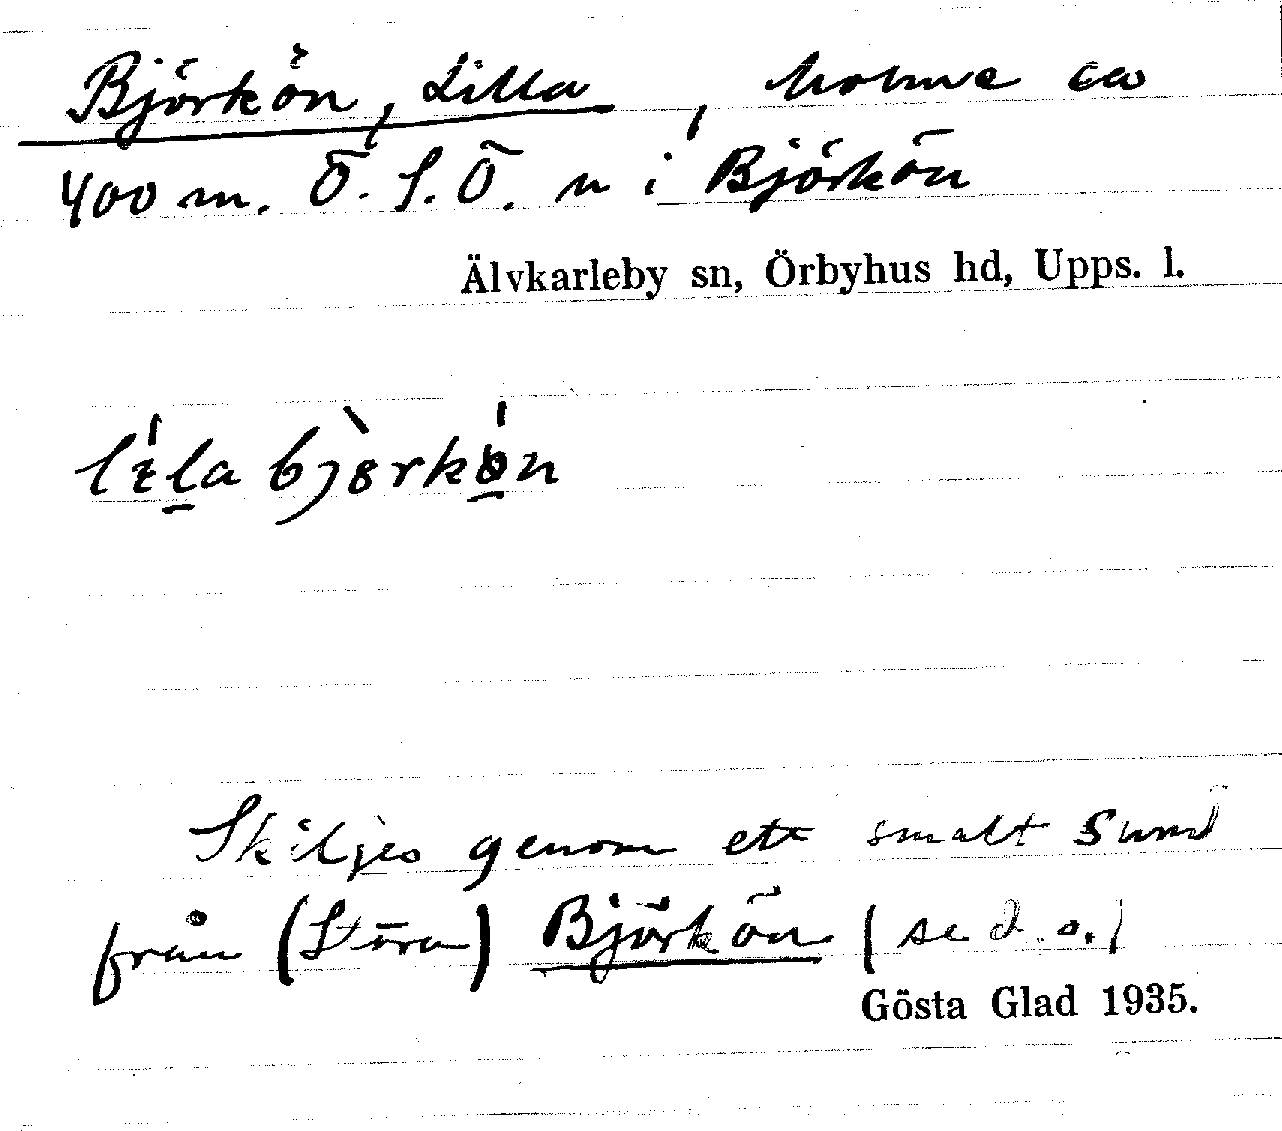 Björkön, Lilla, holme ca
400 m. Ö. S. Ö. n i Björkön
Älvkarleby sn, Örbyhus hd, Upps. l.
lila bjørkøn
Skiljes genom ett smalt sund
från (Stora) Björkön (se d. o.)
Gösta Glad 1935.